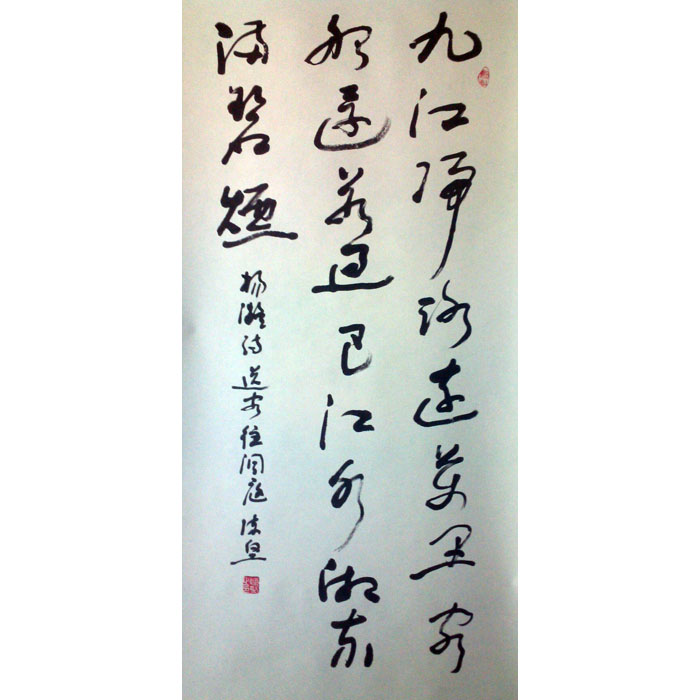 九江歸路遠萬里客
船還若過巴江水湘東
滿碧煙
楊凝詩送客往洞庭